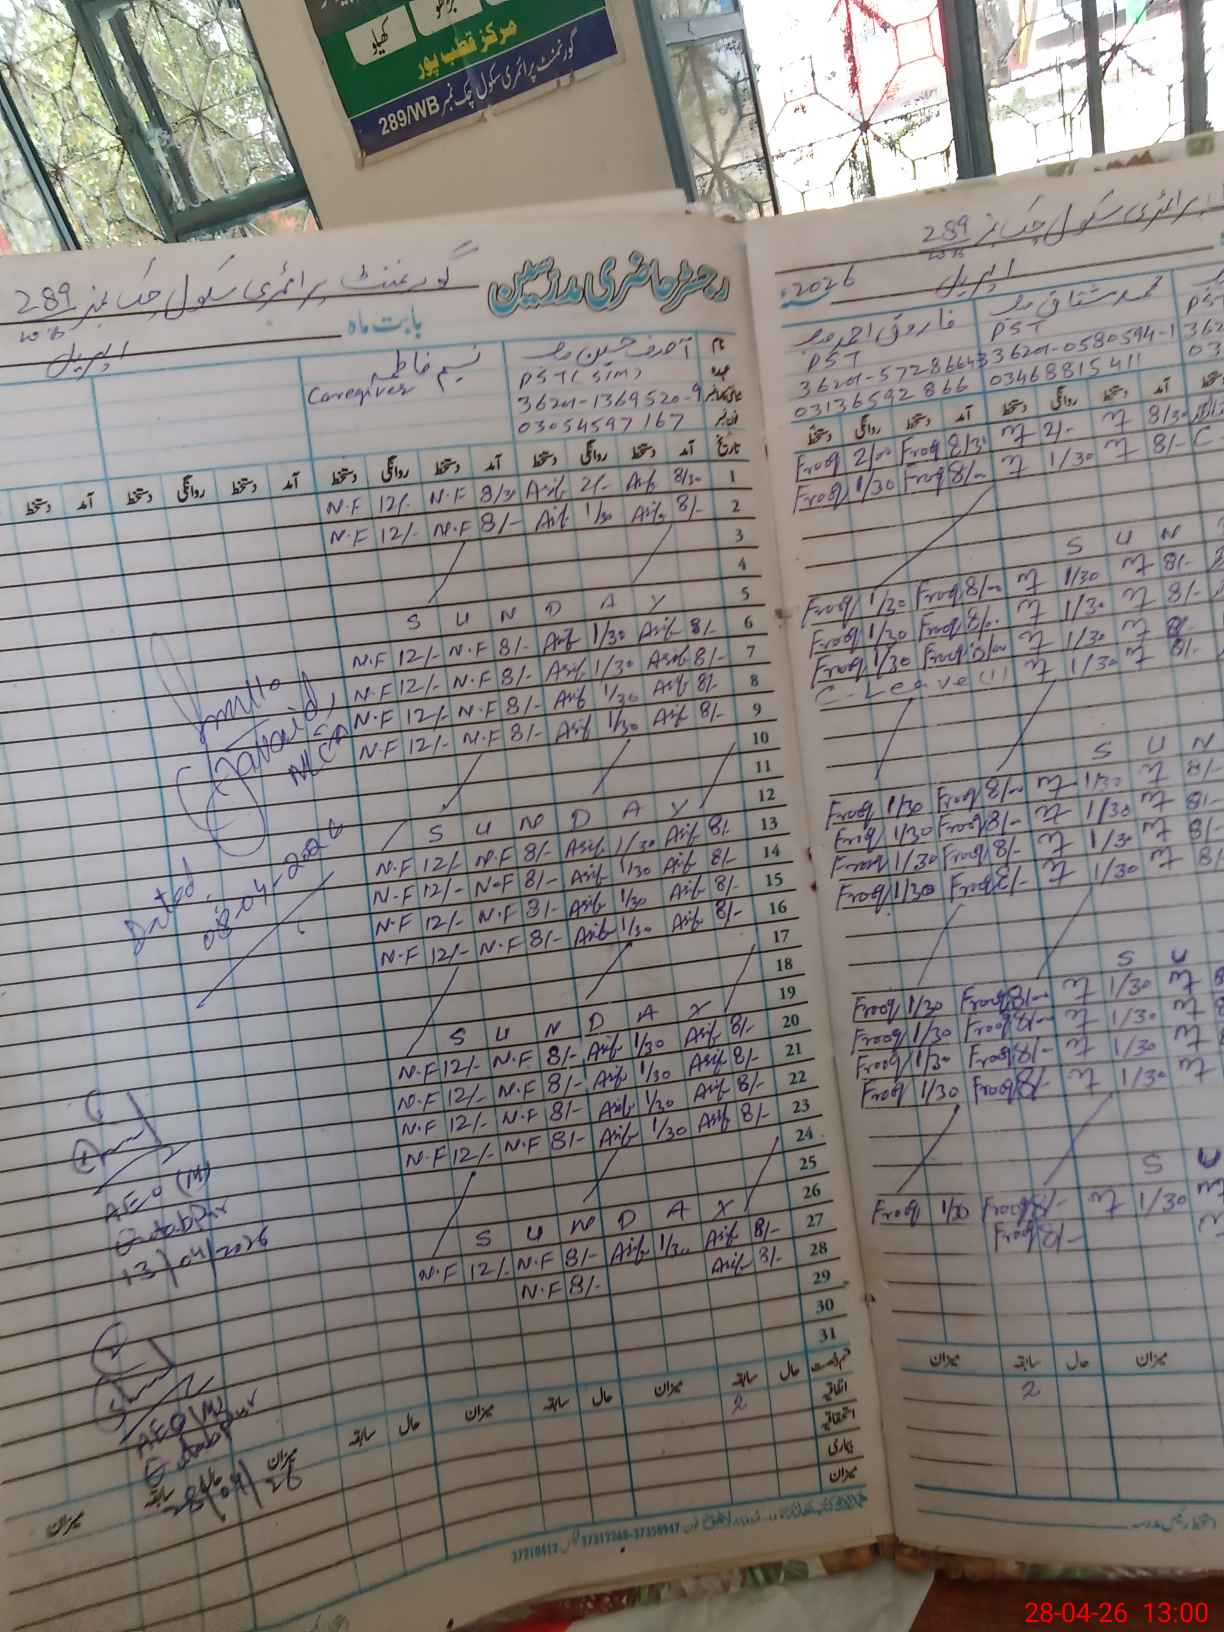 کھیلو
مرکز قطب پور
گورنمنٹ پرائمری سکول چک نمبر 289/WB
رجسٹر حاضری مدرسین
گورنمنٹ پرائمری سکول چک نمبر 289
بابت ماہ اپریل
نام آصف حسین نسیم فاطمہ
عہدہ PST (SIM) Caregiver
36201-1369520-9
03054597167
تاریخ آمد دستخط روانگی دستخط آمد دستخط روانگی دستخط آمد دستخط روانگی دستخط آمد دستخط
N.F 12/- N.F 8/30 Asif 2/- Asif 8/30 1
N.F 12/- N.F 8/- Asif 1/30 Asif 8/- 2
3
4
S U N D A Y 5
N.F 12/- N.F 8/- Asif 1/30 Asif 8/- 6
N.F 12/- N.F 8/- Asif 1/30 Asif 8/- 7
N.F 12/- N.F 8/- Asif 1/30 Asif 8/- 8
N.F 12/- N.F 8/- Asif 1/30 Asif 8/- 9
10
11
S U N D A Y 12
N.F 12/- N.F 8/- Asif 1/30 Asif 8/- 13
N.F 12/- N.F 8/- Asif 1/30 Asif 8/- 14
N.F 12/- N.F 8/- Asif 1/30 Asif 8/- 15
N.F 12/- N.F 8/- Asif 1/30 Asif 8/- 16
17
18
S U N D A Y 19
N.F 12/- N.F 8/- Asif 1/30 Asif 8/- 20
N.F 12/- N.F 8/- Asif 1/30 Asif 8/- 21
N.F 12/- N.F 8/- Asif 1/30 Asif 8/- 22
N.F 12/- N.F 8/- Asif 1/30 Asif 8/- 23
24
25
S U N D A Y 26
N.F 12/- N.F 8/- Asif 1/30 Asif 8/- 27
N.F 8/- Asif 8/- 28
29
30
31
حال سابقہ میزان حال سابقہ میزان حال سابقہ میزان
اتفاقیہ 2
استحقاقیہ
بیماری
میزان
Javaid
MEA
Dated
08-04-2026
AEO (M)
Qutabpur
13/04/2026
AEO (M)
Qutabpur
28/04/26
پرائمری سکول چک نمبر 289
اپریل
2026
محمد مشتاق فاروق احمد
PST PST
36201-0580594-1
03468815411
03136592866
آمد دستخط روانگی دستخط آمد دستخط روانگی دستخط
Frooq 2/00 Frooq 8/30 2/- 8/30
Frooq 1/30 Frooq 8/- 1/30 8/-
S U N
Frooq 1/30 Frooq 8/- 1/30 8/-
Frooq 1/30 Frooq 8/- 1/30 8/-
Frooq 1/30 Frooq 8/- 1/30 8/-
C-Leave (1) 1/30 8/-
S U N
Frooq 1/30 Frooq 8/- 1/30 8/-
Frooq 1/30 Frooq 8/- 1/30 8/-
Frooq 1/30 Frooq 8/- 1/30 8/-
Frooq 1/30 Frooq 8/- 1/30 8/-
S U
Frooq 1/30 Frooq 8/- 1/30
Frooq 1/30 Frooq 8/- 1/30
Frooq 1/30 Frooq 8/- 1/30
Frooq 1/30 Frooq 8/- 1/30
S U
Frooq 1/30 Frooq 8/- 1/30
Frooq 8/-
میزان حال سابقہ میزان
2
28-04-26 13:00